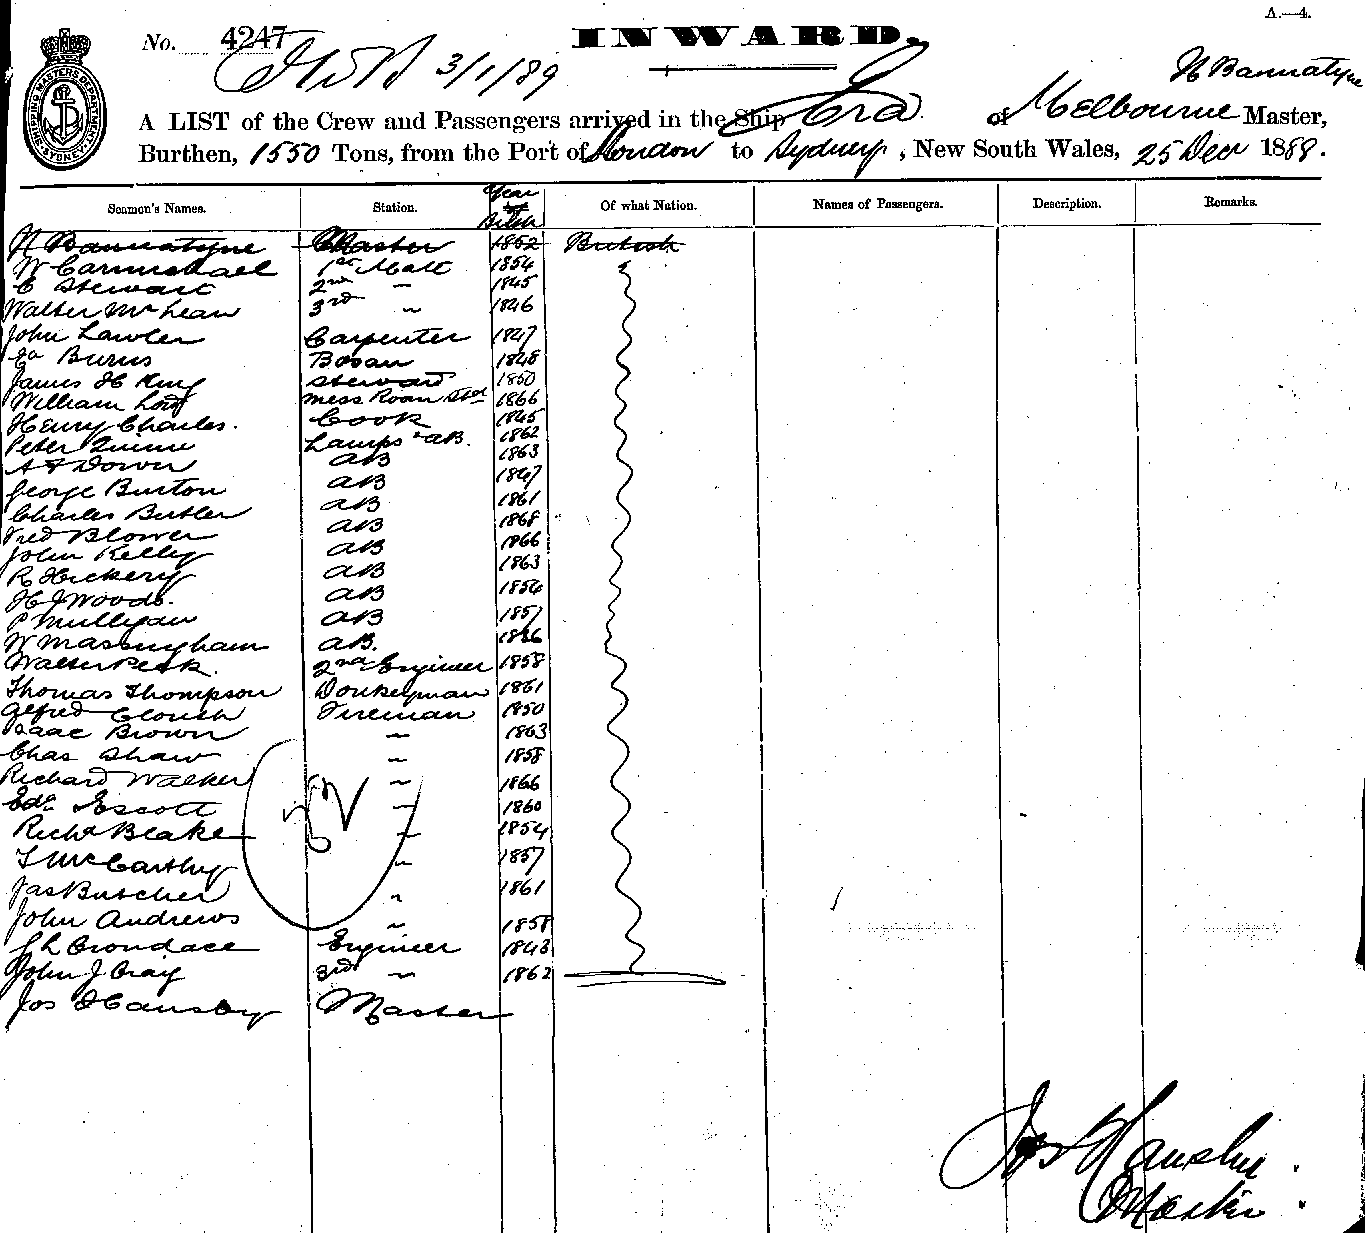 A.—4.
No. 4247
INWARD.
3/1/89
H Bannatyne
A LIST of the Crew and Passengers arrived in the Ship Era of Melbourne Master,
Burthen, 1550 Tons, from the Port of London to Sydney, New South Wales, 25 Dec 1888.
SHIPPING MASTERS DEPARTMENT SYDNEY
Seamen's Names. Station. Year of Birth Of what Nation. Names of Passengers. Description. Remarks.
H Bannatyne Master 1852 British
W Carmichael 1st Mate 1854
C Stewart 2nd " 1845
Walter McLean 3rd " 1846
John Lawler Carpenter 1847
Ed Burns Bosan 1848
James H King Steward 1850
William Low Mess Room Std 1866
Henry Charles. Cook 1845
Peter Quinn Lamps & AB. 1862
A F Down AB 1863
George Burton AB 1847
Charles Butler AB 1861
Fred Blower AB 1868
John Kelly AB 1866
R Hickery AB 1863
H J Woods. AB 1854
P Mulligan AB 1857
W Massingham AB. 1846
Walter Peak. 2nd Engineer 1858
Thomas Thompson Donkeyman 1861
Alfred Clouch Fireman 1850
Isaac Brown " 1863
Chas Shaw " 1858
Richard Walker " 1866
Edd Escott " 1860
Richd Blake " 1854
T McCarthy " 1857
Jas Butcher " 1861
John Andrews " 1858
J L Crondace Engineer 1843
John J Craig 3rd " 1862
Jos Hansby Master
32
Jos Hansby
Master